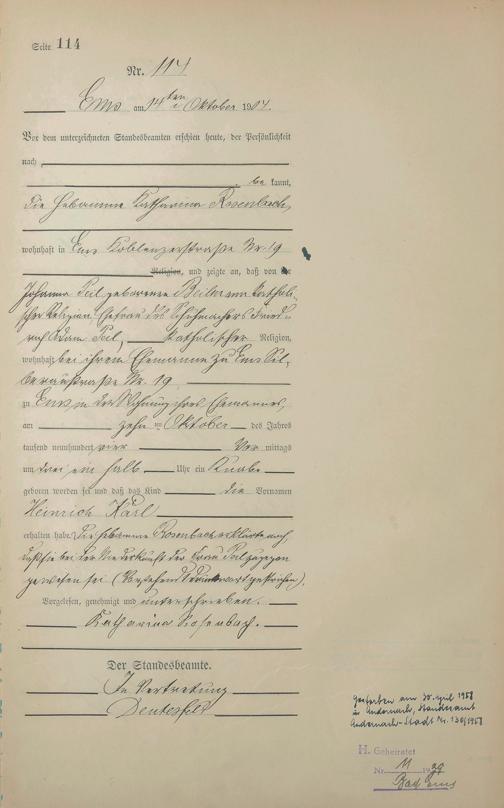 Seite 114
Nr. 114
Ems am 14ten Oktober 1904.
Vor dem unterzeichneten Standesbeamten erschien heute, der Persönlichkeit
nach
be kannt,
die Hebamme Katharina Rosenbach,
wohnhaft in Ems Koblenzerstraße Nr. 19
Religion, und zeigte an, daß von der
Johanna Teil geborenen katholi-
scher Religion, Ehefrau des Schuhmachers
Adam Teil, katholischer Religion,
wohnhaft bei ihrem Ehemanne zu Ems Sil-
beraustraße Nr. 19
zu Ems in der Wohnung ihres Ehemannes,
am zehn ten Oktober des Jahres
tausend neunhundert vier Vor mittags
um drei ein halb Uhr ein Knabe
geboren worden sei und daß das Kind die Vornamen
Heinrich Karl
erhalten habe. Die Hebamme Rosenbach erklärte noch
daß sie bei der Niederkunft der Frau Teil zugegen
gewesen sei (Vorstehend Druckwort gestrichen).
Vorgelesen, genehmigt und unterschrieben.
Katharina Rosenbach.
Der Standesbeamte.
In Vertretung
Gestorben am 30. April 1958
in Andernach, Standesamt
Andernach-Stadt Nr. 130/1958
H. Geheiratet
Nr. 11 1929
Bad Ems